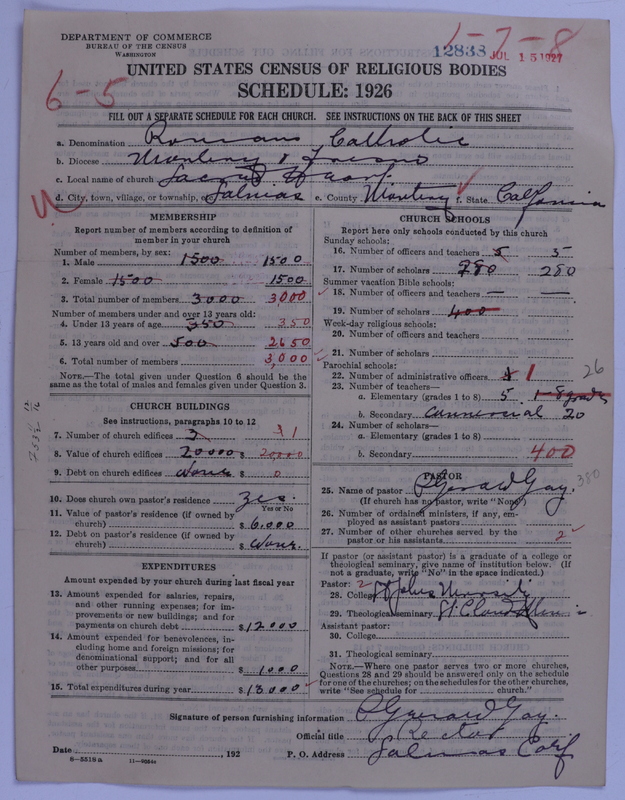 DEPARTMENT OF COMMERCE
BUREAU OF THE CENSUS
WASHINGTON
1-7-8
12838 JUL 15 1927
6-5
UNITED STATES CENSUS OF RELIGIOUS BODIES
SCHEDULE: 1926
FILL OUT A SEPARATE SCHEDULE FOR EACH CHURCH. SEE INSTRUCTIONS ON THE BACK OF THIS SHEET
a. Denomination Roman Catholic
b. Diocese Monterey & Fresno
c. Local name of church Sacred Heart
d. City, town, village, or township, or Salinas e. County Monterey f. State California
MEMBERSHIP
Report number of members according to definition of member in your church
Number of members, by sex:
1. Male 1500 1500
2. Female 1500 1500
3. Total number of members 3000 3,000
Number of members under and over 13 years old:
4. Under 13 years of age 350 350
5. 13 years old and over 500 2650
6. Total number of members 3,000
NOTE.—The total given under Question 6 should be the same as the total of males and females given under Question 3.
CHURCH BUILDINGS
See instructions, paragraphs 10 to 12
7. Number of church edifices 3 1
8. Value of church edifices 20000 $ 20000
9. Debt on church edifices None $ 0
10. Does church own pastor's residence Yes.
Yes or No
11. Value of pastor's residence (if owned by church) $ 6,000
12. Debt on pastor's residence (if owned by church) $ None.
EXPENDITURES
Amount expended by your church during last fiscal year
13. Amount expended for salaries, repairs, and other running expenses; for improvements or new buildings; and for payments on church debt $ 12000
14. Amount expended for benevolences, including home and foreign missions; for denominational support; and for all other purposes $ 1000
15. Total expenditures during year $ 13000
CHURCH SCHOOLS
Report here only schools conducted by this church
Sunday schools:
16. Number of officers and teachers 5 5
17. Number of scholars 280 280
Summer vacation Bible schools:
18. Number of officers and teachers — —
19. Number of scholars 400
Week-day religious schools:
20. Number of officers and teachers
21. Number of scholars
Parochial schools:
22. Number of administrative officers 1 26
23. Number of teachers—
a. Elementary (grades 1 to 8) 5 1-8 grades
b. Secondary Commercial 20
24. Number of scholars—
a. Elementary (grades 1 to 8)
b. Secondary 400
380
PASTOR
25. Name of pastor P Gerard Gay.
(If church has no pastor, write "None")
26. Number of ordained ministers, if any, employed as assistant pastors
27. Number of other churches served by the pastor or his assistants 2
If pastor (or assistant pastor) is a graduate of a college or theological seminary, give name of institution below. (If not a graduate, write "No" in the space indicated.)
Pastor: 2
28. College St Johns University
29. Theological seminary St. Cloud Minn
Assistant pastor:
30. College
31. Theological seminary
NOTE.—Where one pastor serves two or more churches, Questions 28 and 29 should be answered only on the schedule for one of the churches; on the schedules for the other churches, write "See schedule for church."
Signature of person furnishing information P Gerard Gay.
Official title Rector
Date , 192 P. O. Address Salinas Calif
8—5518 a